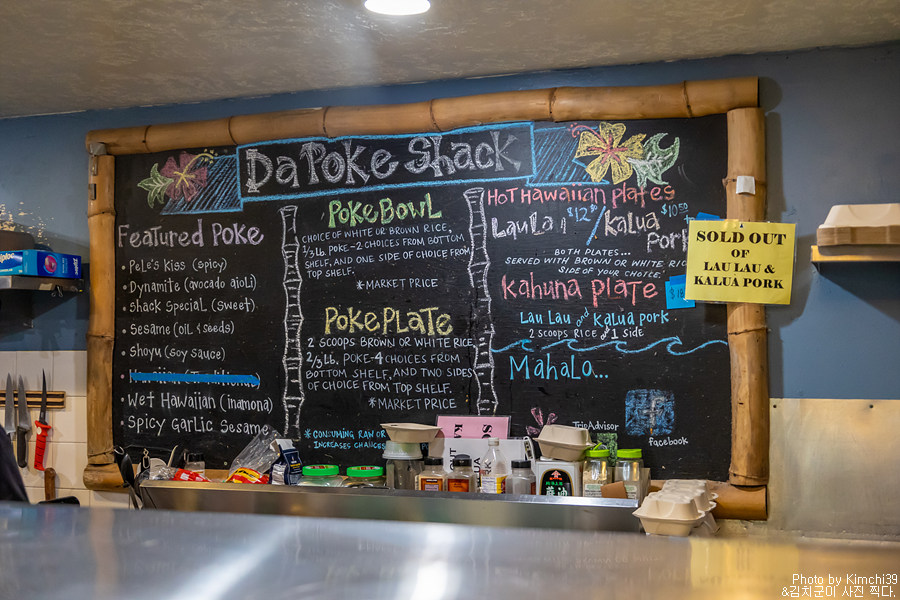 Da Poke Shack
Featured Poke
• Pele's Kiss (spicy)
• Dynamite (avocado aioli)
• Shack Special (sweet)
• Sesame (oil & seeds)
• Shoyu (soy sauce)
• Wet Hawaiian (inamona)
• Spicy Garlic Sesame
Poke Bowl
CHOICE OF WHITE OR BROWN RICE,
1/3 lb. POKE-2 CHOICES FROM BOTTOM
SHELF, AND ONE SIDE OF CHOICE FROM
TOP SHELF.
*MARKET PRICE
Poke Plate
2 SCOOPS BROWN OR WHITE RICE
2/3 lb. POKE-4 CHOICES FROM
BOTTOM SHELF, AND TWO SIDES
OF CHOICE FROM TOP SHELF.
*MARKET PRICE
*CONSUMING RAW OR
INCREASES CHANCES
Hot Hawaiian Plates
Lau Lau / Kalua
Pork
$10.50
BOTH PLATES...
SERVED WITH BROWN OR WHITE RICE
SIDE OF YOUR CHOICE.
Kahuna Plate
Lau Lau and Kalua Pork
2 SCOOPS RICE and 1 SIDE
Mahalo...
TripAdvisor
facebook
SOLD OUT
OF
LAU LAU &
KALUA PORK
Photo by Kimchi39
&김치군이 사진 찍다.